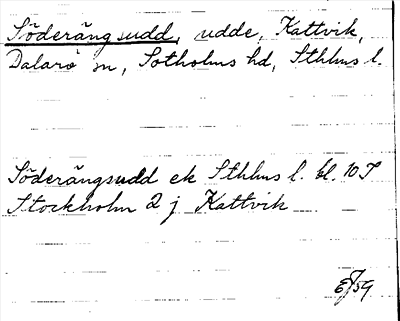 Söderängsudd, udde, Kattvik,
Dalarö sn, Sotholms hd, Sthlms l.
Söderängsudd ek Sthlms l. bl. 10 S
Stockholm 2 j Kattvik